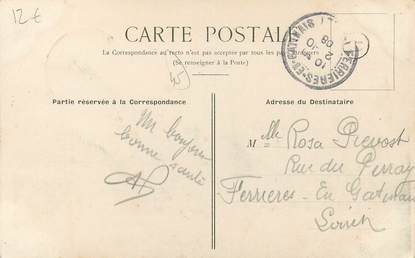 12€
CARTE POSTALE
La Correspondance au recto n'est pas acceptée par tous les pays étrangers
(Se renseigner à la Poste)
FERRIERES-EN-GATINAIS
45
Partie réservée à la Correspondance
Adresse du Destinataire
un bonjour
bonne santé
M elle Rosa Prevost
Rue du Perray
Ferrieres-En Gatinais
Loiret